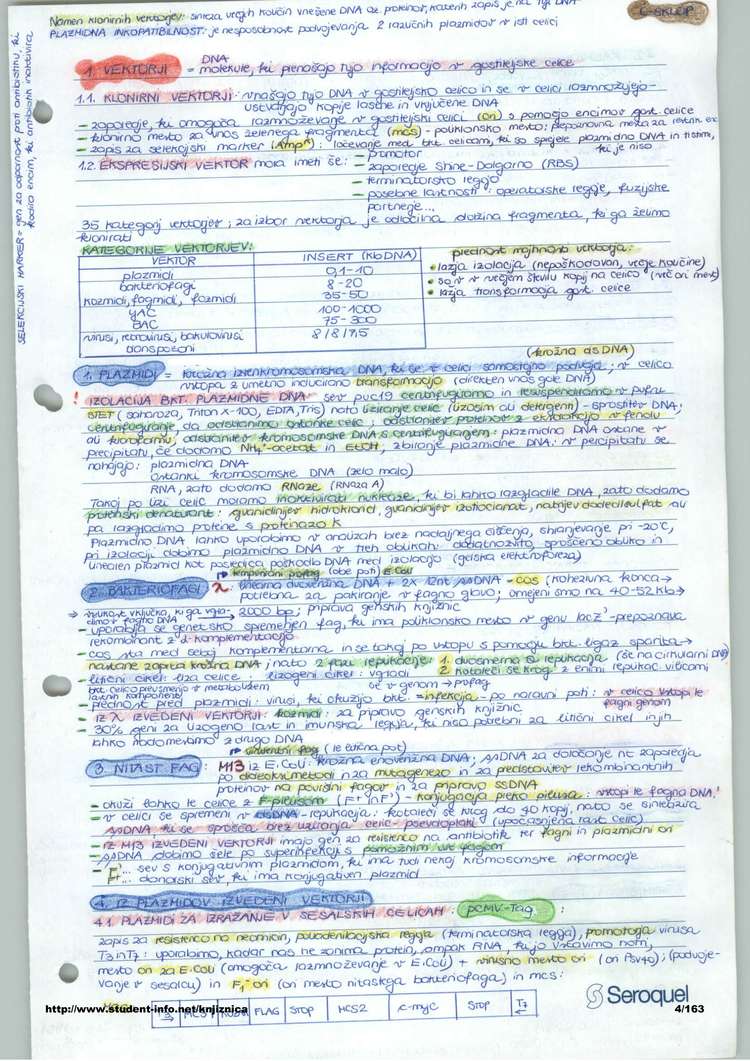 Namen klonirnih vektorjev: sinteza večjih količin vnešene DNA oz. proteinov, katerih zapis je na tuji DNA
C-SKLOP
PLAZMIDNA INKOPATIBILNOST: je nesposobnost podvojevanja 2 različnih plazmidov v isti celici
SELEKCIJSKI MARKER = gen za odpornost proti antibiotiku, ki
kodira encim, ki antibiotik inaktivira
DNA
1. VEKTORJI = molekule, ki prenašajo tujo informacijo v gostiteljske celice
1.1. KLONIRNI VEKTORJI: vnašajo tujo DNA v gostiteljsko celico in se v celici razmnožujejo -
ustvarjajo kopije lastne in vključene DNA
- zaporedje, ki omogoča razmnoževanje v gostiteljski celici (ori) s pomočjo encimov gost. celice
- klonirno mesto za vnos želenega fragmenta (mcs) - poliklonsko mesto; prepoznavna mesta za restrik. en.
- zapis za selekcijski marker (Amp^R): ločevanje med bkt. celicami, ki so sprejele plazmidno DNA in tistimi,
ki je niso
1.2. EKSPRESIJSKI VEKTOR mora imeti še: - promotor
- zaporedje Shine-Dalgarno (RBS)
- terminatorsko regijo
- posebne lastnosti: operatorske regije, fuzijske
partnerje...
35 kategorij vektorjev; za izbor vektorja je odločilna dolžina fragmenta, ki ga želimo
klonirati
KATEGORIJE VEKTORJEV:
VEKTOR INSERT (KbDNA)
plazmidi 0,1-10
bakteriofagi 8-20
kozmidi, fagmidi, fazmidi 35-50
YAC 100-1000
BAC 75-300
virusi, retrovirusi, bakulovirusi 8/8/7,5
transpozoni
prednost majhnosti vektorja:
• lažja izolacija (nepoškodovan, večje količine)
• so v v večjem številu kopij na celico (več ori mest)
• lažja transformacija gost. celice
(krožna ds DNA)
1. PLAZMIDI = krožna izvenkromosomska DNA, ki se v celici samostojno podvaja; v celico
vstopa z umetno inducirano transformacijo (direkten vnos gole DNA)
! IZOLACIJA BKT. PLAZMIDNE DNA: sev puc19 centrifugiramo in resuspendiramo v pufru
STET (saharoza, Triton X-100, EDTA, Tris) nato liziranje celic (lizosim ali detergent) - sprostitev DNA;
centrifugiranje, da odstranimo ostanke celic; odstranitev proteinov z ekstrakcijo v fenolu
ali kloroformu; odstranitev kromosomske DNA s centrifugiranjem: plazmidna DNA ostane v
precipitatu, če dodamo NH₄-acetat in EtOH; zbiranje plazmidne DNA. v percipitatu se
nahajajo: plazmidna DNA
ostanki kromosomske DNA (zelo malo)
RNA, zato dodamo RNaze (RNaza A)
Takoj po lizi celic moramo inaktivirati nukleaze, ki bi lahko razgradile DNA, zato dodamo
proteinski denaturant: gvanidinijev hidroklorid, gvanidinijev izotiocianat, natrijev dodecilsulfat ali
pa razgradimo proteine s proteinazo K
Plazmidno DNA lahko uporabimo v analizah brez nadaljnega čiščenja, shranjevanje pri -20°C,
pri izolaciji dobimo plazmidno DNA v treh oblikah: dodatnozvito, sproščeno obliko in
linearen plazmid kot posledica poškodb DNA med izolacijo (gelska elektroforeza)
↱ temperirani profag (obe poti) E. Coli
2. BAKTERIOFAGI λ: linearna dvoverižna DNA + 2x 12nt ssDNA - cos (kohezivna konca →
potrebna za pakiranje v fagno glavo; omejeni smo na 40-52 Kb →
2000 bp; priprava genskih knjižnic
- uporablja se genetsko spremenjen fag, ki ima poliklonsko mesto v genu lacZ' - prepoznava
rekombinant z α-komplementacijo
- cos sta med seboj komplementarna in se takoj po vstopu s pomočjo bkt. ligaz sparita →
nastane zaprta krožna DNA; nato 2 fazi replikacije: 1. dvosmerna θ replikacija (še na cirkularni DNA)
2. kotaleči se krog z enimi replikac. vilicami
- litični cikel: liza celice; lizogeni cikel: vgradi
se v genom → profag
bkt. celico preusmerijo v metabolizem
lastnih komponent
- prednost pred plazmidi: virusi, ki okužijo bkt. = infekcija = po naravni poti: v celico vstopi le
fagni genom
- IZ λ IZVEDENI VEKTORJI: kozmidi: za pripravo genskih knjižnic
- 30% geni za lizogeno rast in imunska regija, ki niso potrebni za litični cikel in jih
lahko nadomestimo z drugo DNA
(le litična pot)
3. NITAST FAG: M13 iz E. Coli: krožna enoverižna DNA; ssDNA za določanje nt zaporedja
po dideoksi metodi in za mutagenezo in za predstavitev rekombinantnih
proteinov na površini fagov in za pripravo SSDNA
- okuži lahko le celice z F-pilusom (F+ in F') - konjugacija preko pilusa: vstopi le fagna DNA!
- v celici se spremeni v dsDNA - replikacija: kotaleči se krog do 40 kopij, nato se sintetizira
ssDNA, ki se sprošča brez liziranja celic - psevdoplaki (upočasnjena rast celic)
- IZ M13 IZVEDENI VEKTORJI imajo gen za resistenco na antibiotik ter fagni in plazmidni ori
- ssDNA dobimo šele po superinfekciji s pomožnim wt fagom
- F'... sev s konjugativnim plazmidom, ki ima tudi nekaj kromosomske informacije
F+... donorski sev, ki ima konjugativen plazmid
4. IZ PLAZMIDOV IZVEDENI VEKTORJI
4.1. PLAZMIDI ZA IZRAŽANJE V SESALSKIH CELICAH: pCMV-Tag:
zapis za resistenco na neomicin, poliadenilacijska regija (terminatorska regija), promotorja virusa
T3 in T7: uporabimo, kadar nas ne zanima protein, ampak RNA, ki jo vstavimo noter,
mesto ori za E. Coli (omogoča razmnoževanje v E. Coli) + virusno mesto ori (ori PSV40); (podvoje-
vanje v sesalcu) in F₁ ori (ori mesto nitastega bakteriofaga) in mcs:
FLAG STOP MCS2 c-myc STOP T7
http://www.student-info.net/knjiznica
Seroquel
4/163